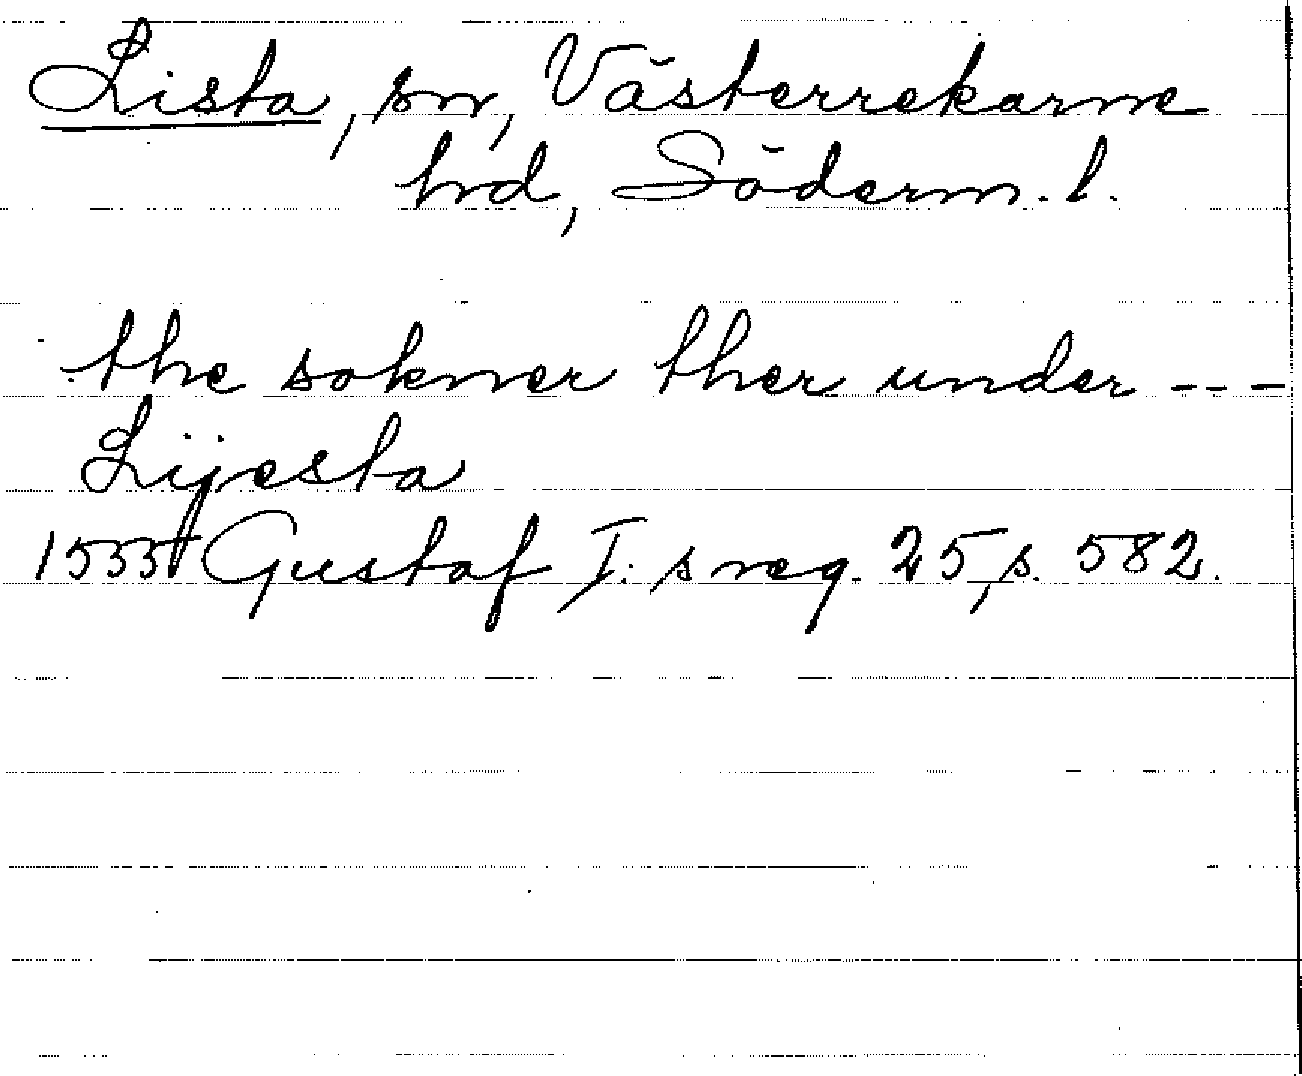 Lista, sn, Västerrekarne
hd, Söderm. l.
the sokner ther under ---
Lijesta
1533 Gustaf I:s reg. 25, s. 582.